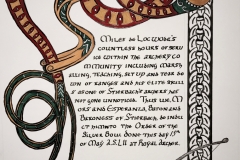 Miles de Lacwode's
countless hours of serv
ice within the archery co
mmunity including marsh
alling, teaching, set up and tear do
wn of ranges and his elite skill
s as one of Stierbach's archers has
not gone unnoticed. Thus We, M
and Esperanza, Baron and
Baroness of Stierbach, do indu
ct him into the Order of the
Silver Buul done this day 17th
of May A.S. LII at Royal Archer.